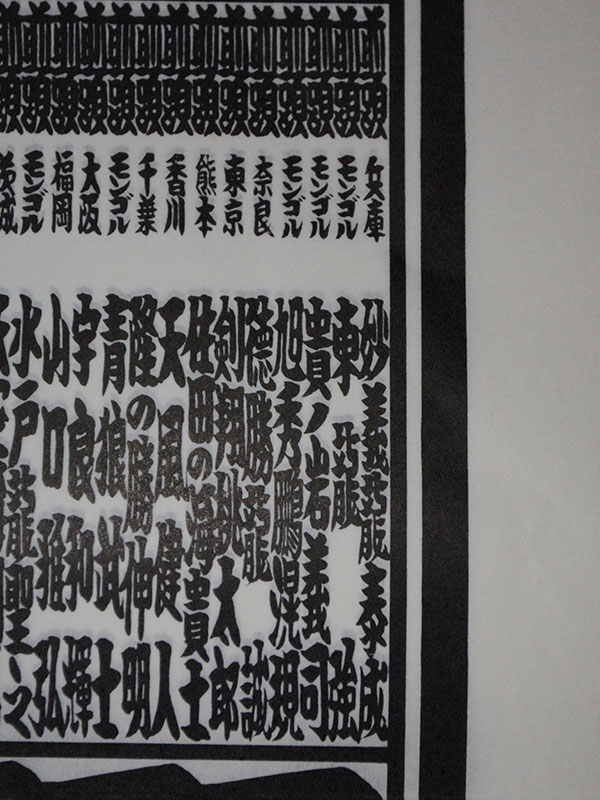 前頭 兵庫 妙義龍泰成
前頭 モンゴル 東龍強
前頭 モンゴル 貴ノ岩義司
前頭 モンゴル 旭秀鵬滉規
前頭 奈良 徳勝龍誠
前頭 東京 剣翔桃太郎
前頭 熊本 佐田の海貴士
前頭 香川 天風健人
前頭 千葉 隆の勝伸明
前頭 モンゴル 青狼武士
前頭 大阪 宇良和輝
前頭 福岡 山口雅弘
前頭 モンゴル 水戸龍聖之
茨城